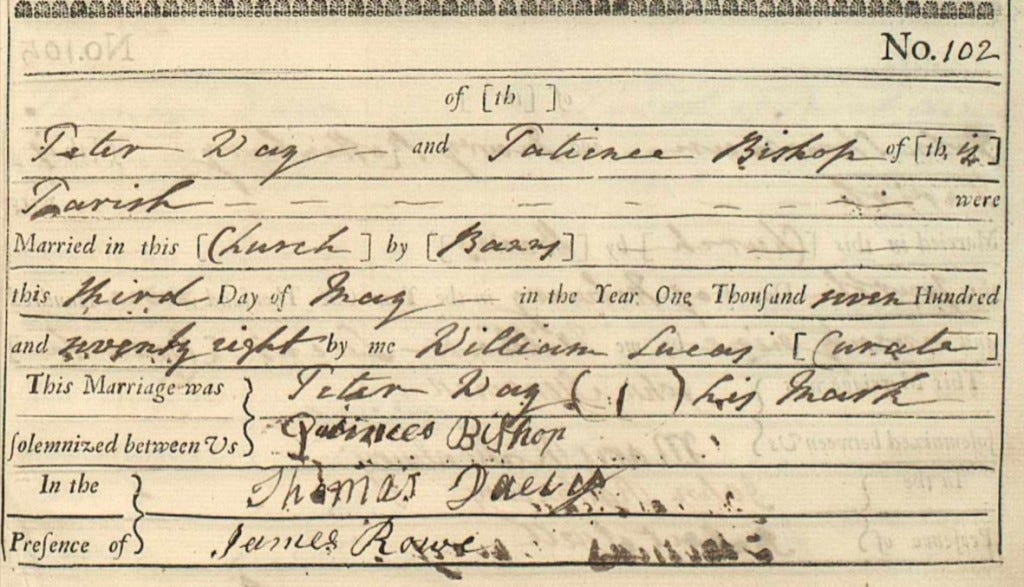 No. 102
of [th ]
Peter Day and Patience Bishop of [th is]
Parish were
Married in this [Church] by [Banns]
this third Day of May in the Year One Thouſand seven Hundred
and seventy eight by me William Lucas [Curate]
This Marriage was Peter Day ( ) his Mark
ſolemnized between Us Bishop
In the Thomas
Preſence of James Rowe